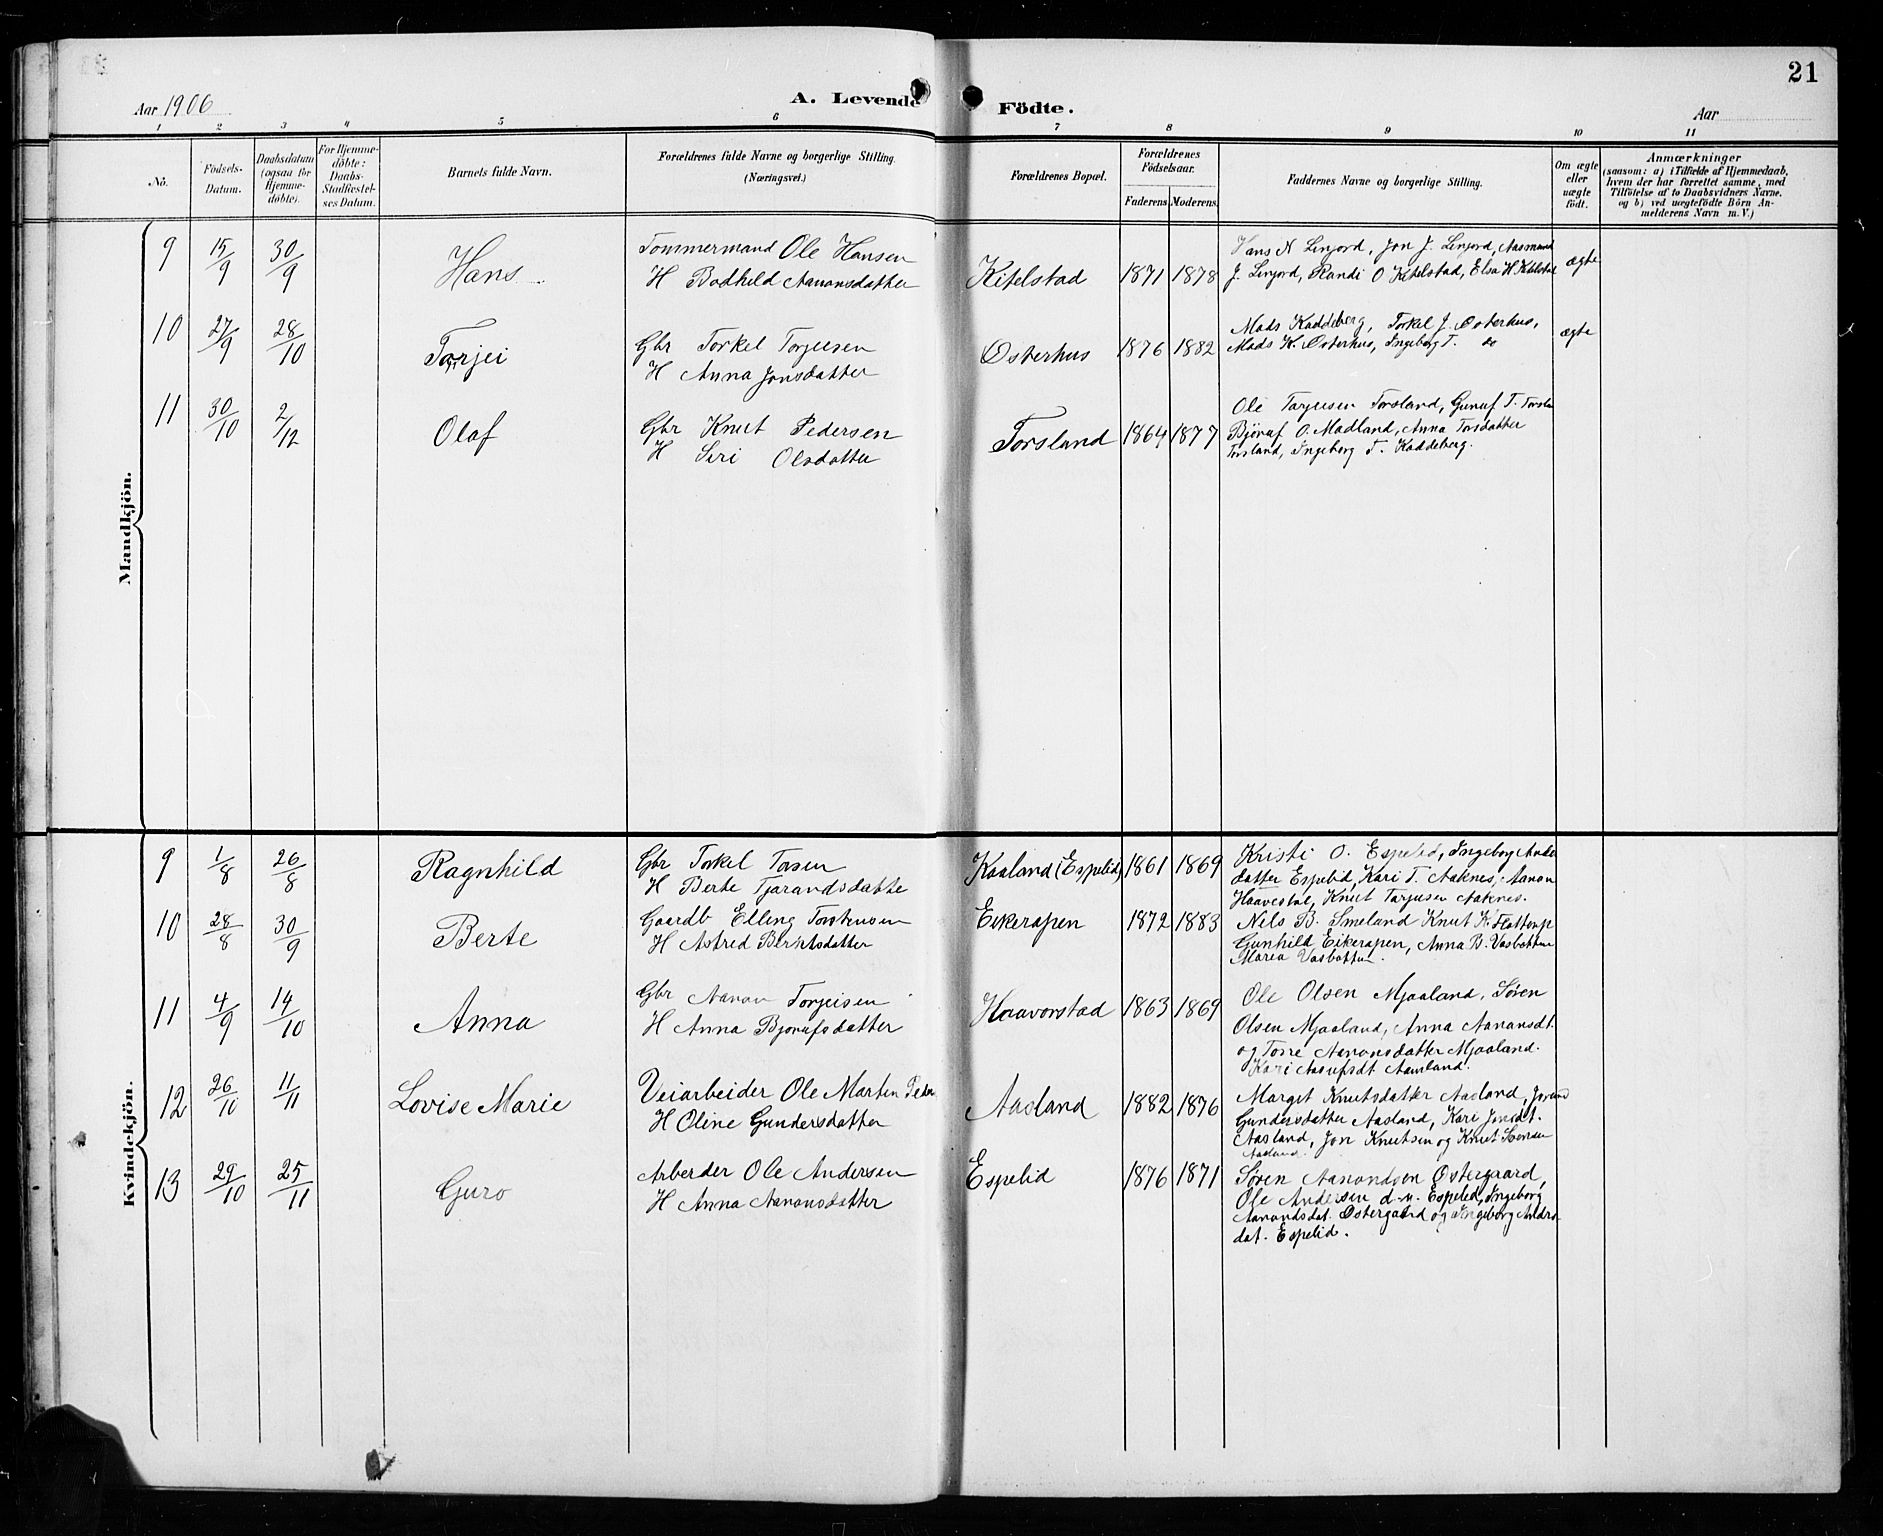 21
Aar 1906
A. Levende Födte.
Aar
1 2 3 4 5 6 7 8 9 10 11
No.
Födsels-Datum.
Daabsdatum (ogsaa for Hjemme-döbte).
For Hjemme-döbte: Daabs-Stadfæstel-ses Datum.
Barnets fulde Navn.
Forældrenes fulde Navne og borgerlige Stilling. (Næringsvei.)
Forældrenes Bopæl.
Forældrenes Födselsaar.
Faderens. Moderens.
Faddernes Navne og borgerlige Stilling.
Om ægte eller uægte födt.
Anmærkninger
(saasom: a) i Tilfælde af Hjemmedaab, hvem der har forrettet samme, med Tilföielse af to Daabsvidners Navne. og b) ved uægtefödte Börn Anmelderens Navn m. V.)
Mandkjön.
9 15/9 30/9 Hans Tømmermand Ole Hansen Kitelstad 1871 1878 Hans N Linjord, Jon J. Linjord, Aasmund ægte
H Bodhild Aanonsdatter J. Linjord, Randi O Kitelstad, Elsa H Kitelstad
10 27/9 28/10 Torjei Gbr Torkel Torjusen Østerhus 1876 1882 Mads Kaddeberg, Torkel J. Østerhus, ægte
H Anna Jonsdatter Mads K. Østerhus, Ingeborg T. do
11 30/10 2/12 Olaf Gbr Knut Pedersen Torsland 1864 1877 Ole Tarjusen Torsland, Gunuf T. Torsla
H Siri Olsdatter Björuf O. Madland, Anna Torsdatter
Torsland, Ingeborg T. Kaddeberg.
Kvindekjön.
9 1/8 26/8 Ragnhild Gbr Torkel Torsen Kaaland (Espelid) 1861 1869 Kristi O. Espelid, Ingeborg Anders
H Berte Tjarandsdatte datter Espelid, Kari T. Aaknes, Aanon
Haavestøl, Knut Tarjusen Aaknes.
10 28/8 30/9 Berte Gaardb Elling Torstensen Eikerapen 1872 1883 Nils B. Smeland Knut K. Flottorp
H Astred Berntsdatter Gunhild Eikerapen, Anna B. Vasbotten
Marea Vasbotten.
11 4/9 14/10 Anna Gbr Aanon Torjeisen Haavorstad 1863 1869 Ole Olsen Mjaaland, Søren
H Anna Bjorufsdatter Olsen Mjaaland, Anna Aanonsdt.
og Torre Aanonsdatter Mjaaland.
Kari Aasufsdt Aamland.
12 26/10 11/11 Lovise Marie Veiarbeider Ole Marten Peder Aasland 1882 1876 Marget Knutsdatter Aasland, Joran
H Oline Gundersdatter Gundersdatter Aasland, Kari Jonsdt.
Aasland, Jon Knutsen og Knut Svensen
Aasland.
13 29/10 25/11 Guro Arbeider Ole Andersen Espelid 1876 1871 Søren Aanondsen Østergaard,
H Anna Aanonsdatter Ole Andersen d. y. Espelid, Ingeborg
Aanondsdat. Østergaard og Ingeborg Anders
dat. Espelid.